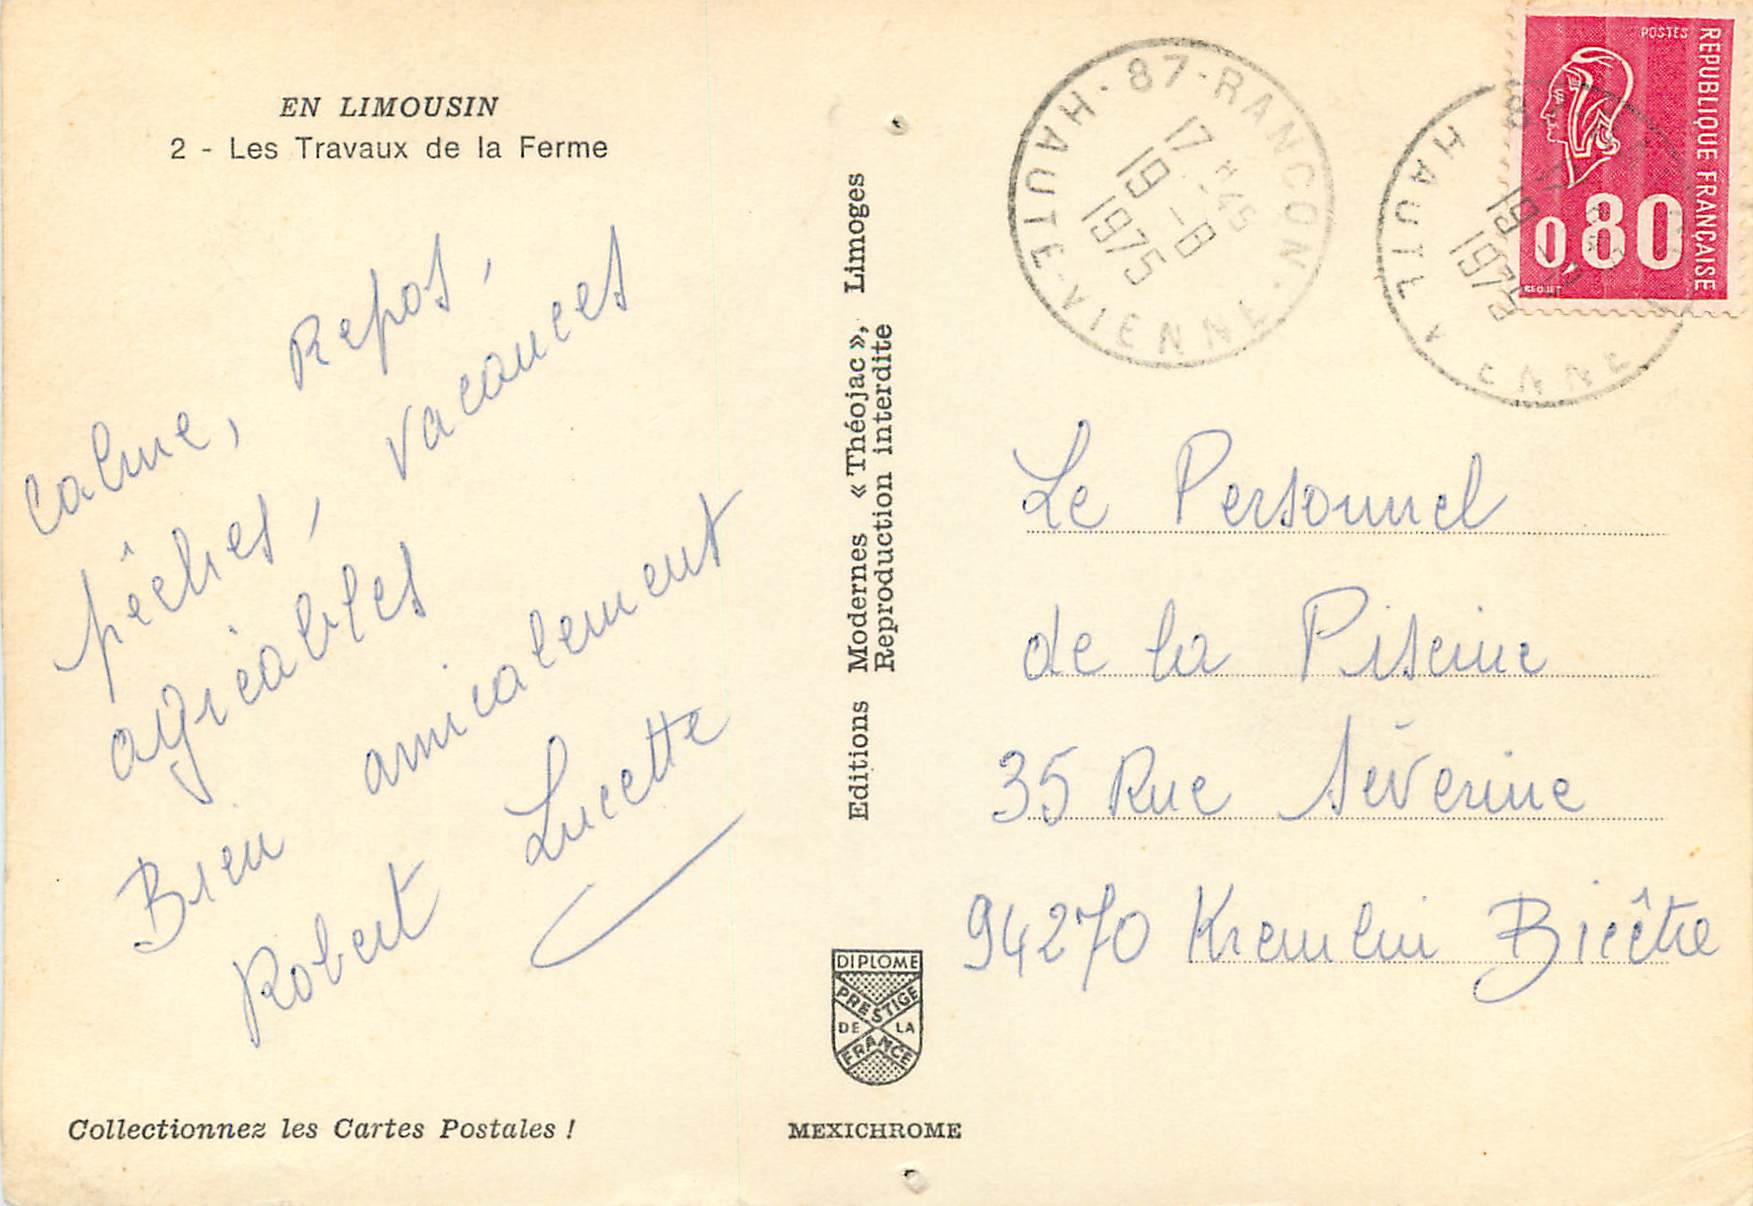 EN LIMOUSIN
2 - Les Travaux de la Ferme
Calme, Repos,
pêches, vacances
agréables
Bien amicalement
Robert Lucette
Collectionnez les Cartes Postales !
Editions Modernes « Théojac », Limoges
Reproduction interdite
DIPLOME
PRESTIGE
DE LA
FRANCE
MEXICHROME
87-RANCON
HAUTE-VIENNE
17 H45
19 -8
1975
POSTES
REPUBLIQUE FRANÇAISE
0,80
HAUTE VIENNE
19
1975
Le Personnel
de la Piscine
35 Rue Séverine
94270 Kremlin Bicêtre